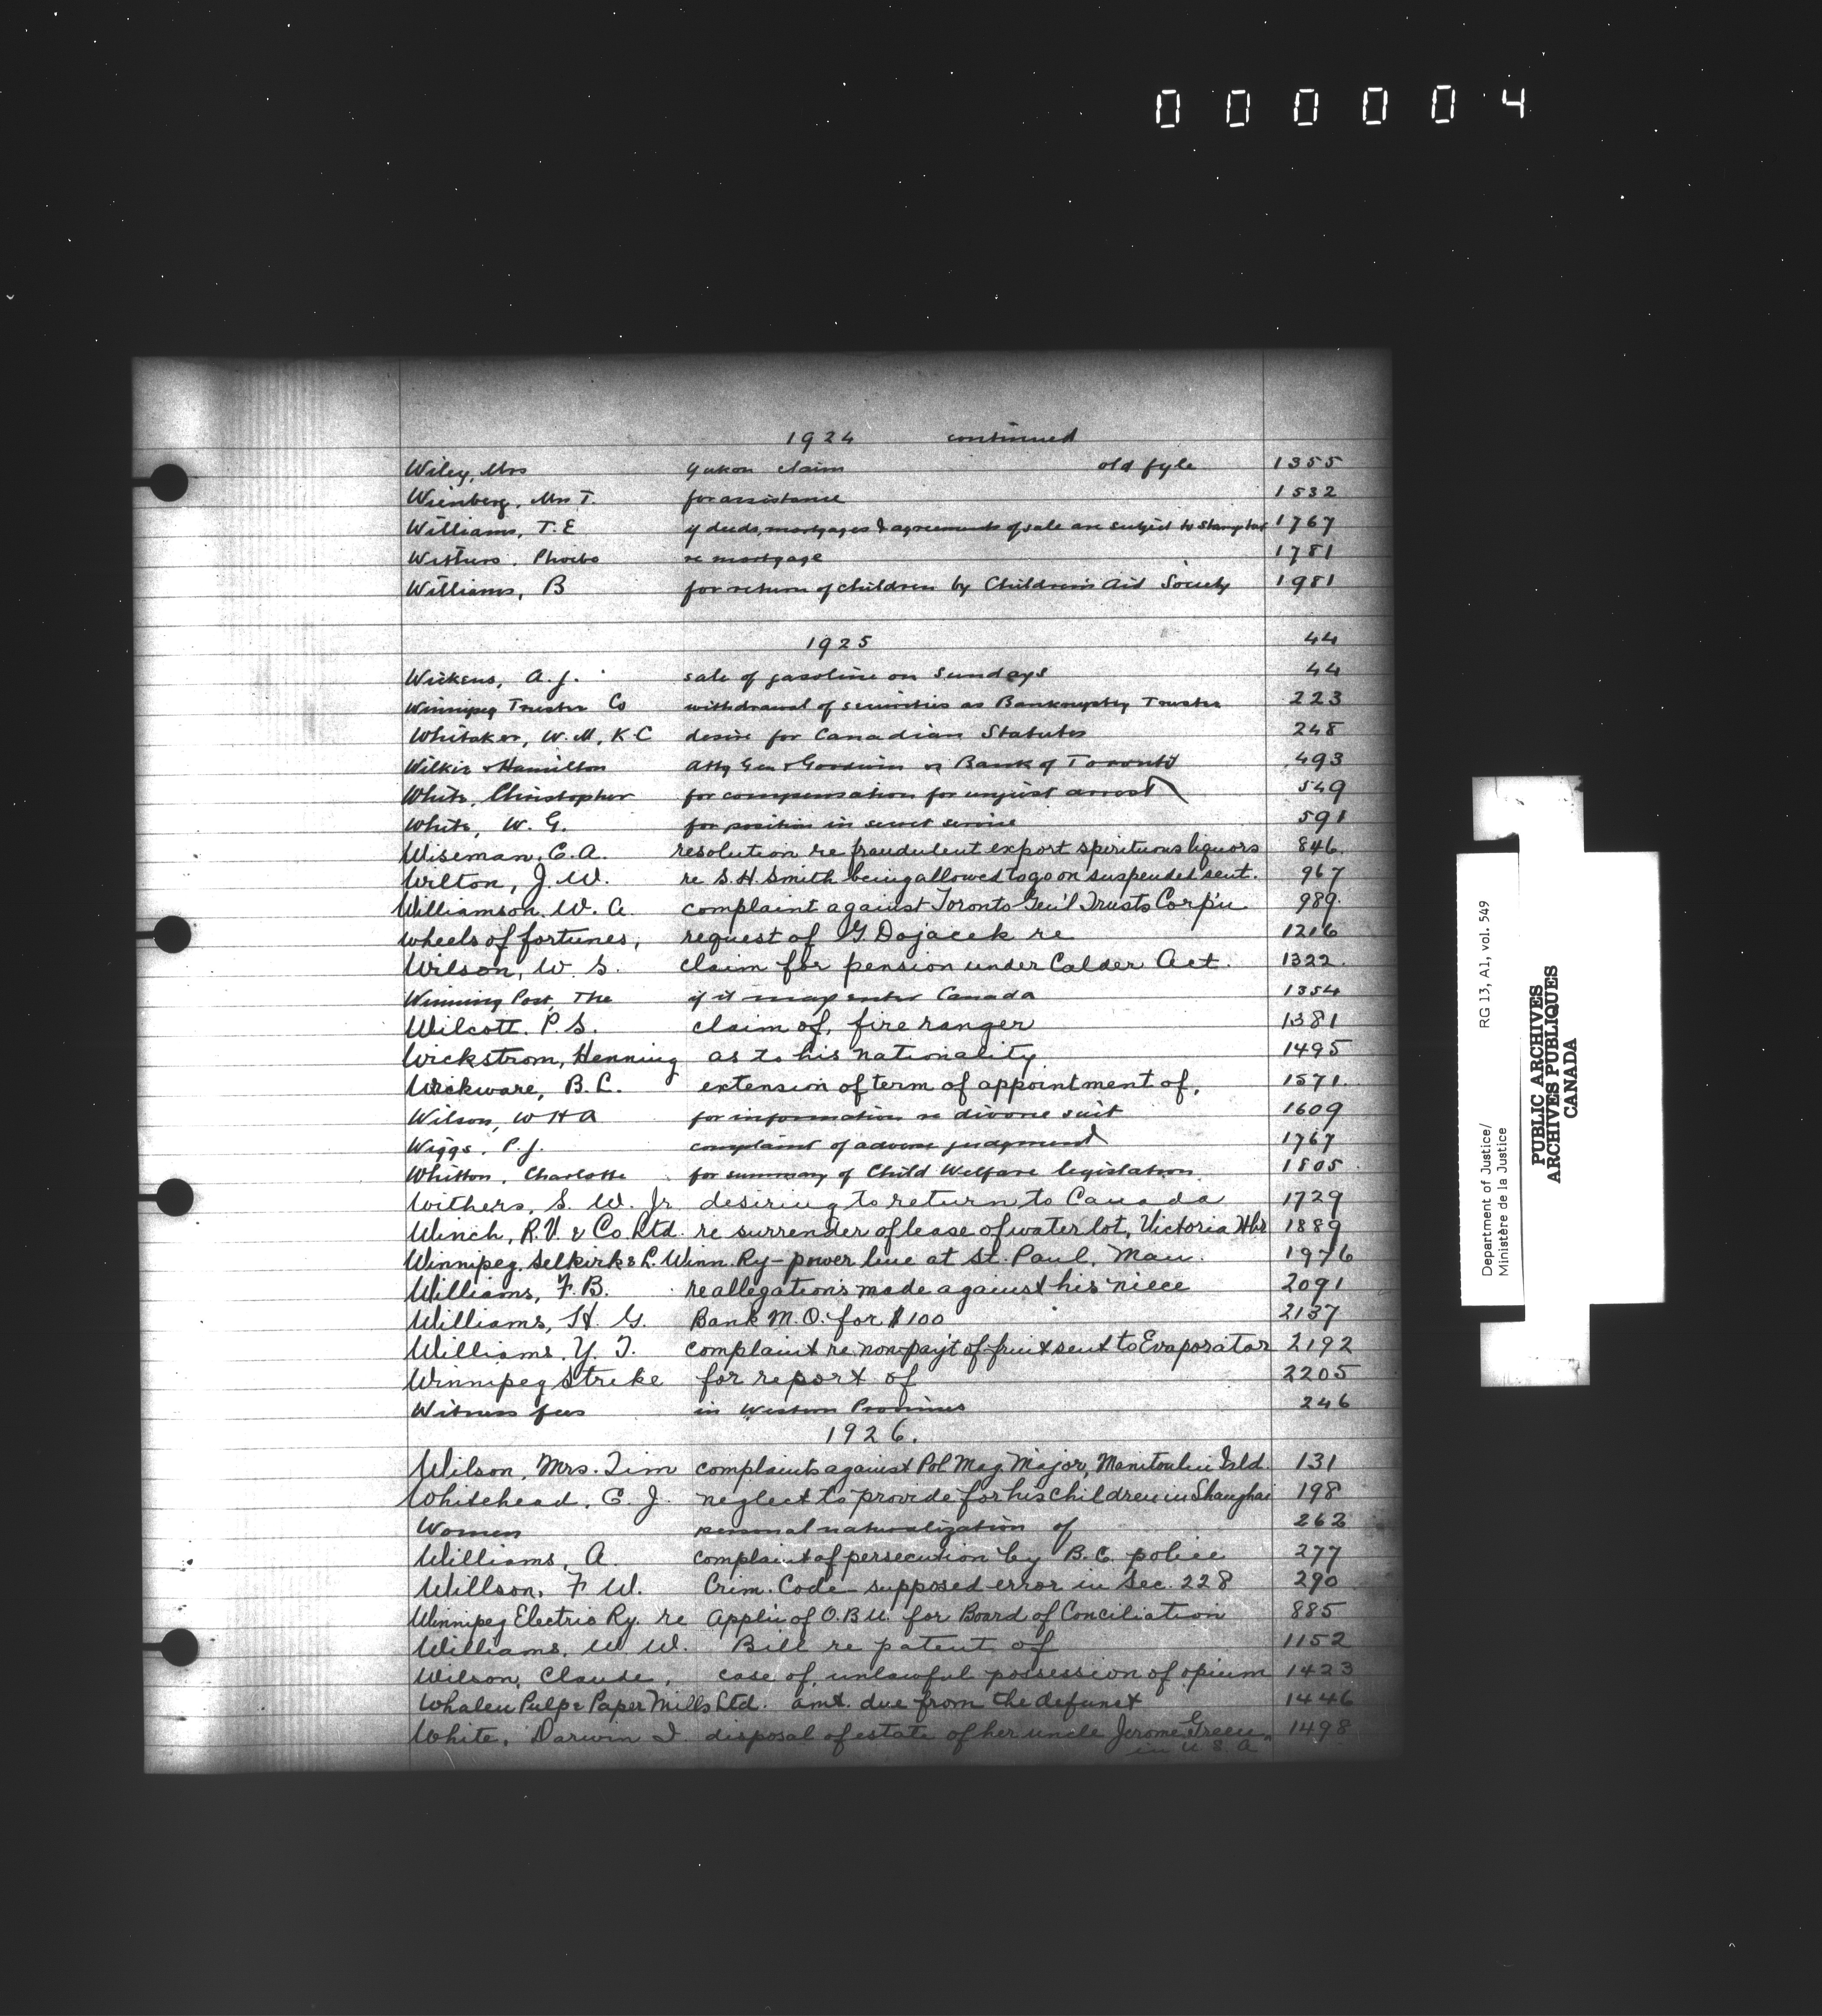 000004
1924 continued
Wiley, Mrs Yukon claim old fyle 1355
Wienberg, Mrs T. for assistance 1532
Williams, T. E if deeds, mortgages & agreements of sale are subject to stamp tax 1767
Withers, Phoebe re mortgage 1781
Williams, B for return of children by Children's Aid Society 1981
1925 44
Wickens, A. J. sale of gasoline on Sundays 44
Winnipeg Trustee Co withdrawal of securities as Bankruptcy Trustee 223
Whitaker, W. M, K C desire for Canadian Statutes 248
Wilkie & Hamilton Atty Gen & Goodwin vs Bank of Toronto 493
White, Christopher for compensation for unjust arrest 549
White, W. G. for position in secret service 591
Wiseman, C. A. resolution re fraudulent export spirituous liquors 846.
Wilton, J. W. re S. H. Smith being allowed to go on suspended sent. 967
Williamson, W. A. complaint against Toronto Gen'l Trusts Corp'n 989.
Wheels of fortunes, request of G Dojacek re 1216
Wilson, W. S. claim for pension under Calder Act. 1322.
Winning Post, The if it may enter Canada 1354
Wilcott. P S. claim of, fire ranger 1381
Wickstrom, Henning as to his nationality 1495
Wickware, B. L. extension of term of appointment of, 1571.
Wilson, W H A for information re divorce suit 1609
Wiggs, P. J. complaint of adverse judgment 1767
Whitton, Charlotte for summary of Child Welfare legislation 1805
Withers, S. W. Jr desiring to return to Canada 1729
Winch, R. V. & Co. Ltd. re surrender of lease of water lot, Victoria Hbr 1889
Winnipeg, Selkirk & L. Winn. Ry – power line at St. Paul, Man. 1976
Williams, F. B. re allegations made against his niece 2091
Williams, H. G. Bank M. O. for $100 2137
Williams, Y. T. complaint re non-pay't of fruit sent to Evaporator 2192
Winnipeg Strike for report of 2205
Witness fees in Western Provinces 246
1926.
Wilson, Mrs. Tim complaints against Pol Mag. Major, Manitoulin Isld. 131
Whitehead, C. J. neglect to provide for his children in Shanghai 198
Women personal naturalization of 262
Williams, A. complaint of persecution by B. C. police 277
Willson, F W. Crim. Code – supposed error in Sec. 228 290
Winnipeg Electric Ry. re Appl'n of O. B. U. for Board of Conciliation 885
Williams, W. W. Bill re patent of 1152
Wilson, Claude, case of, unlawful possession of opium 1423
Whalen Pulp & Paper Mills Ltd. amt. due from the defunct 1446
White, Darwin I. disposal of estate of her uncle Jerome Green 1498
in U. S. A"
Department of Justice/ RG 13, A1, vol. 549
Ministère de la Justice
PUBLIC ARCHIVES
ARCHIVES PUBLIQUES
CANADA